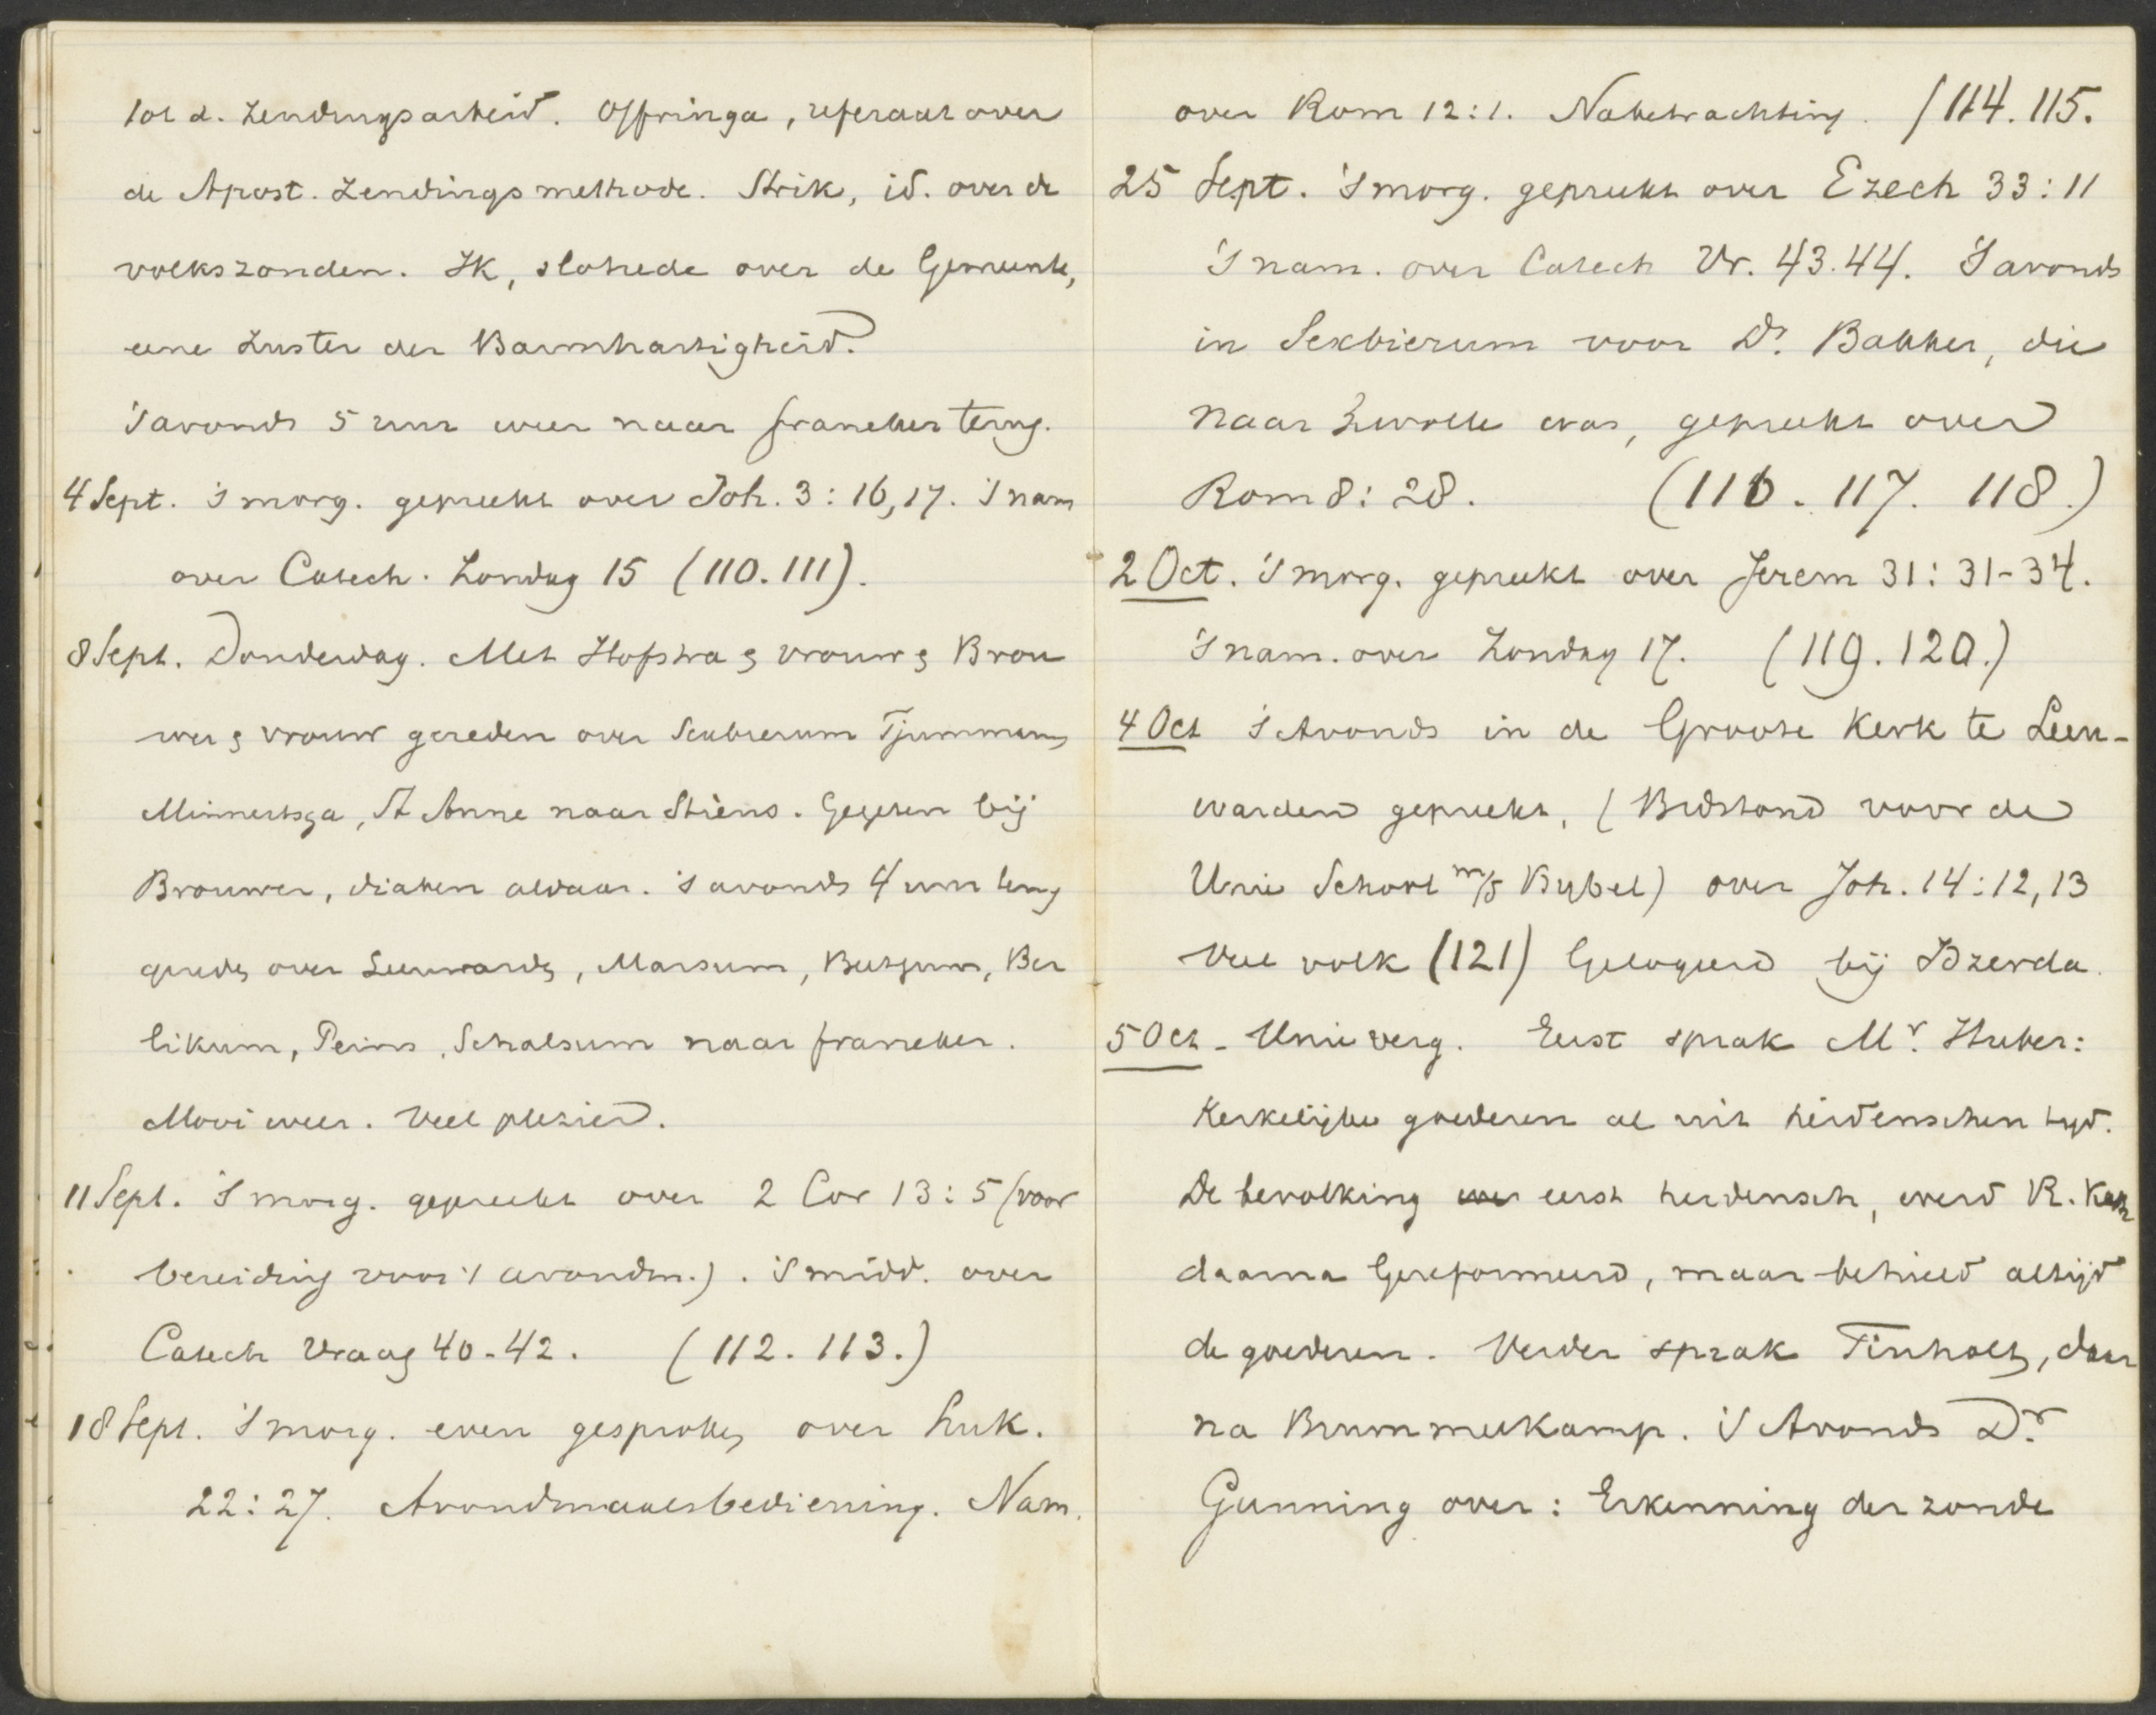 tot d. Zendingsarbeid. Offringa, referaat over
de Apost. Zendingsmethode. Strik, id. over de
volkszonden. Ik, slotrede over de Gemeente,
eene Zuster der Barmhartigheid.
's avonds 5 uur weer naar Franeker terug.
4 Sept. 's morg. gepreekt over Joh. 3:16,17. 's nam
over Catech. Zondag 15 (110.111).
8 Sept. Donderdag. Met Hofstra & vrouw & Brou
wer & vrouw gereden over Sexbierum Tjummarum,
Minnertsga, St Anne naar Stiens. Gegeten bij
Brouwer, diaken aldaar. 's avonds 4 uur terug
gereden over Leeuwarden, Marsum, Beetgum, Ber
likum, Peins, Schalsum naar Franeker.
Mooi weer. Veel plezier.
11 Sept. 's morg. gepreekt over 2 Cor 13:5 (voor
bereiding voor 't avondm.). 's midd. over
Catech Vraag 40-42. (112. 113.)
18 Sept. 's morg. even gesproken over Luk.
22:27. Avondmaalsbediening. Nam.
over Rom 12:1. Nabetrachting. (114. 115.
25 Sept. 's morg. gepreekt over Ezech 33:11
's nam. over Catech Vr. 43.44. 's avonds
in Sexbierum voor Ds. Bakker, die
naar Zwolle was, gepreekt over
Rom 8:28. (116. 117. 118.)
2 Oct. 's morg. gepreekt over Jerem 31:31-34.
's nam. over Zondag 17. (119. 120.)
4 Oct 's Avonds in de Groote Kerk te Leeu-
warden gepreekt, (Bidstond voor de
Unie School m/d Bijbel) over Joh. 14:12,13
Veel volk (121) Gelogeerd bij IJzerda.
5 Oct - Unie verg. Eerst sprak Mr. Huber:
Kerkelijke goederen al uit heidenschen tijd.
De bevolking was eerst heidensch, werd R. Kath
daarna Gereformeerd, maar behield altijd
de goederen. Verder sprak Tinholt, daar
na Brummelkamp. 's Avonds Dr.
Gunning over: Erkenning der zonde